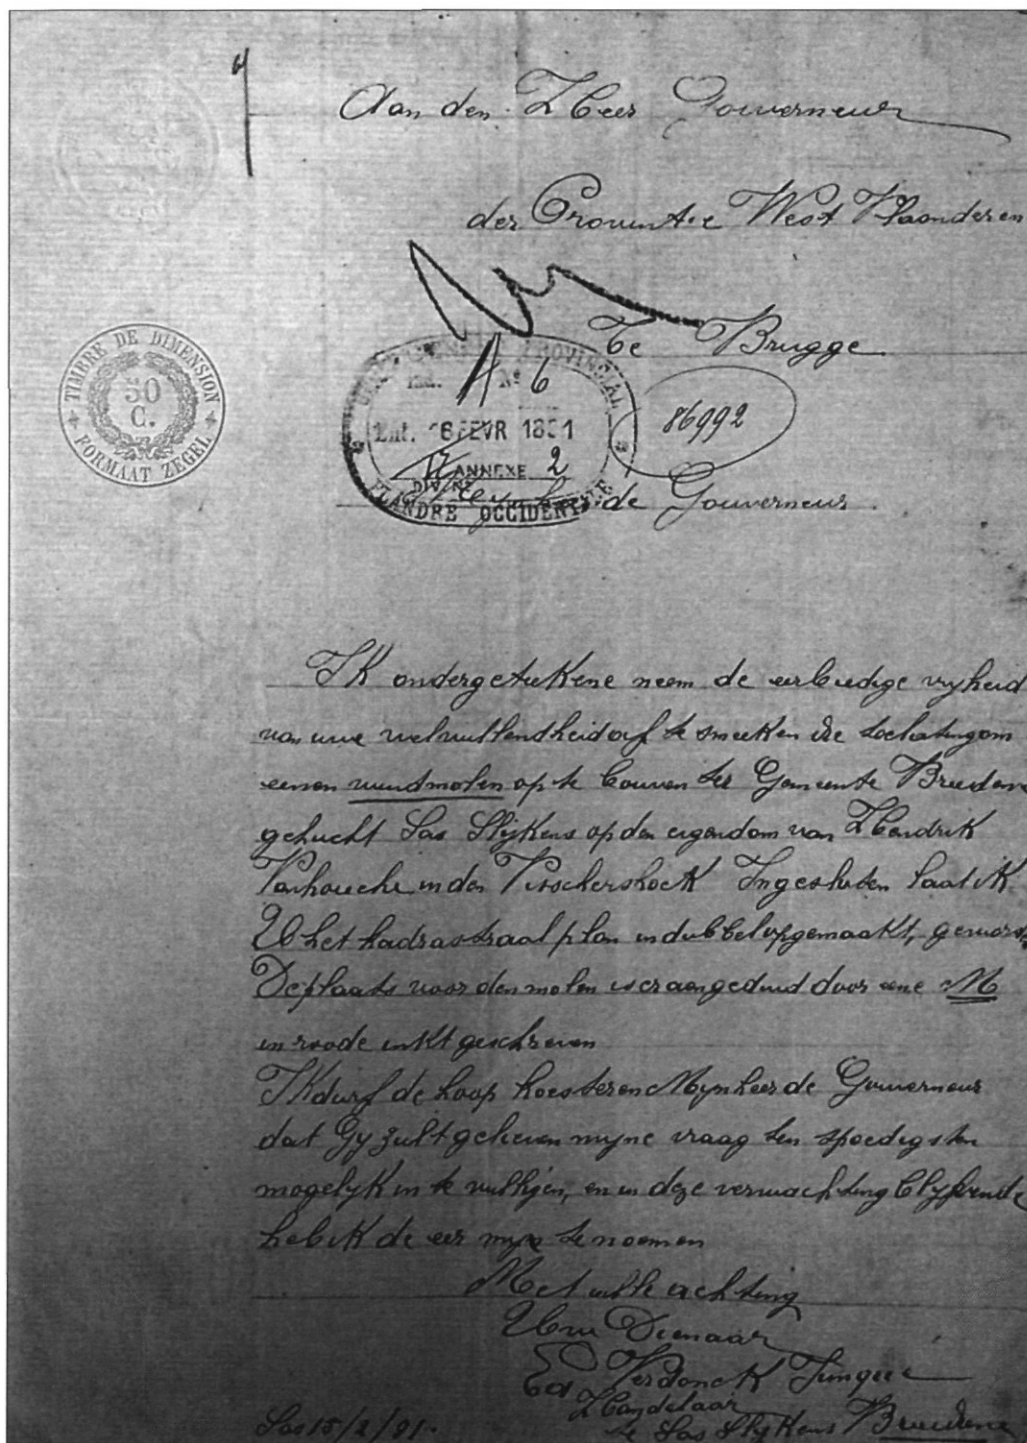 Aan den Heer Gouverneur
der Provintie West Vlaanderen
Te Brugge
TIMBRE DE DIMENSION
50
C.
FORMAAT ZEGEL
PROVINCIAL
Ind. A N° 6
Ent. 16 FEVR 1891
ANNEXE 2
FLANDRE OCCIDENTALE
86992
de Gouverneur
IK ondergeteekene neem de eerbiedige vryheid
van uwe welwillendheid af te smeeken de toelating om
eenen windmolen op te bouwen ter Gemeente Breedene
gehucht Sas Slijkens op den eigendom van Hendrik
Vanhoucke in den Visschershoek Ingesloten laat iK
U het kadrastraal plan in dubbel opgemaakt, geworden
De plaats voor den molen is er aangeduid door eene M
in roode inkt geschreven
IK durf de hoop koesteren Mynheer de Gouverneur
dat Gy zult gelieven myne vraag ten spoedigsten
mogelyk in te willigen, en in deze verwachting blyvende
heb iK de eer myn te noemen
Met alle achting
Uw Dienaar
Ed Verdonck
Handelaar
te Sas Slykens Breedene
Sas 15/2/91.